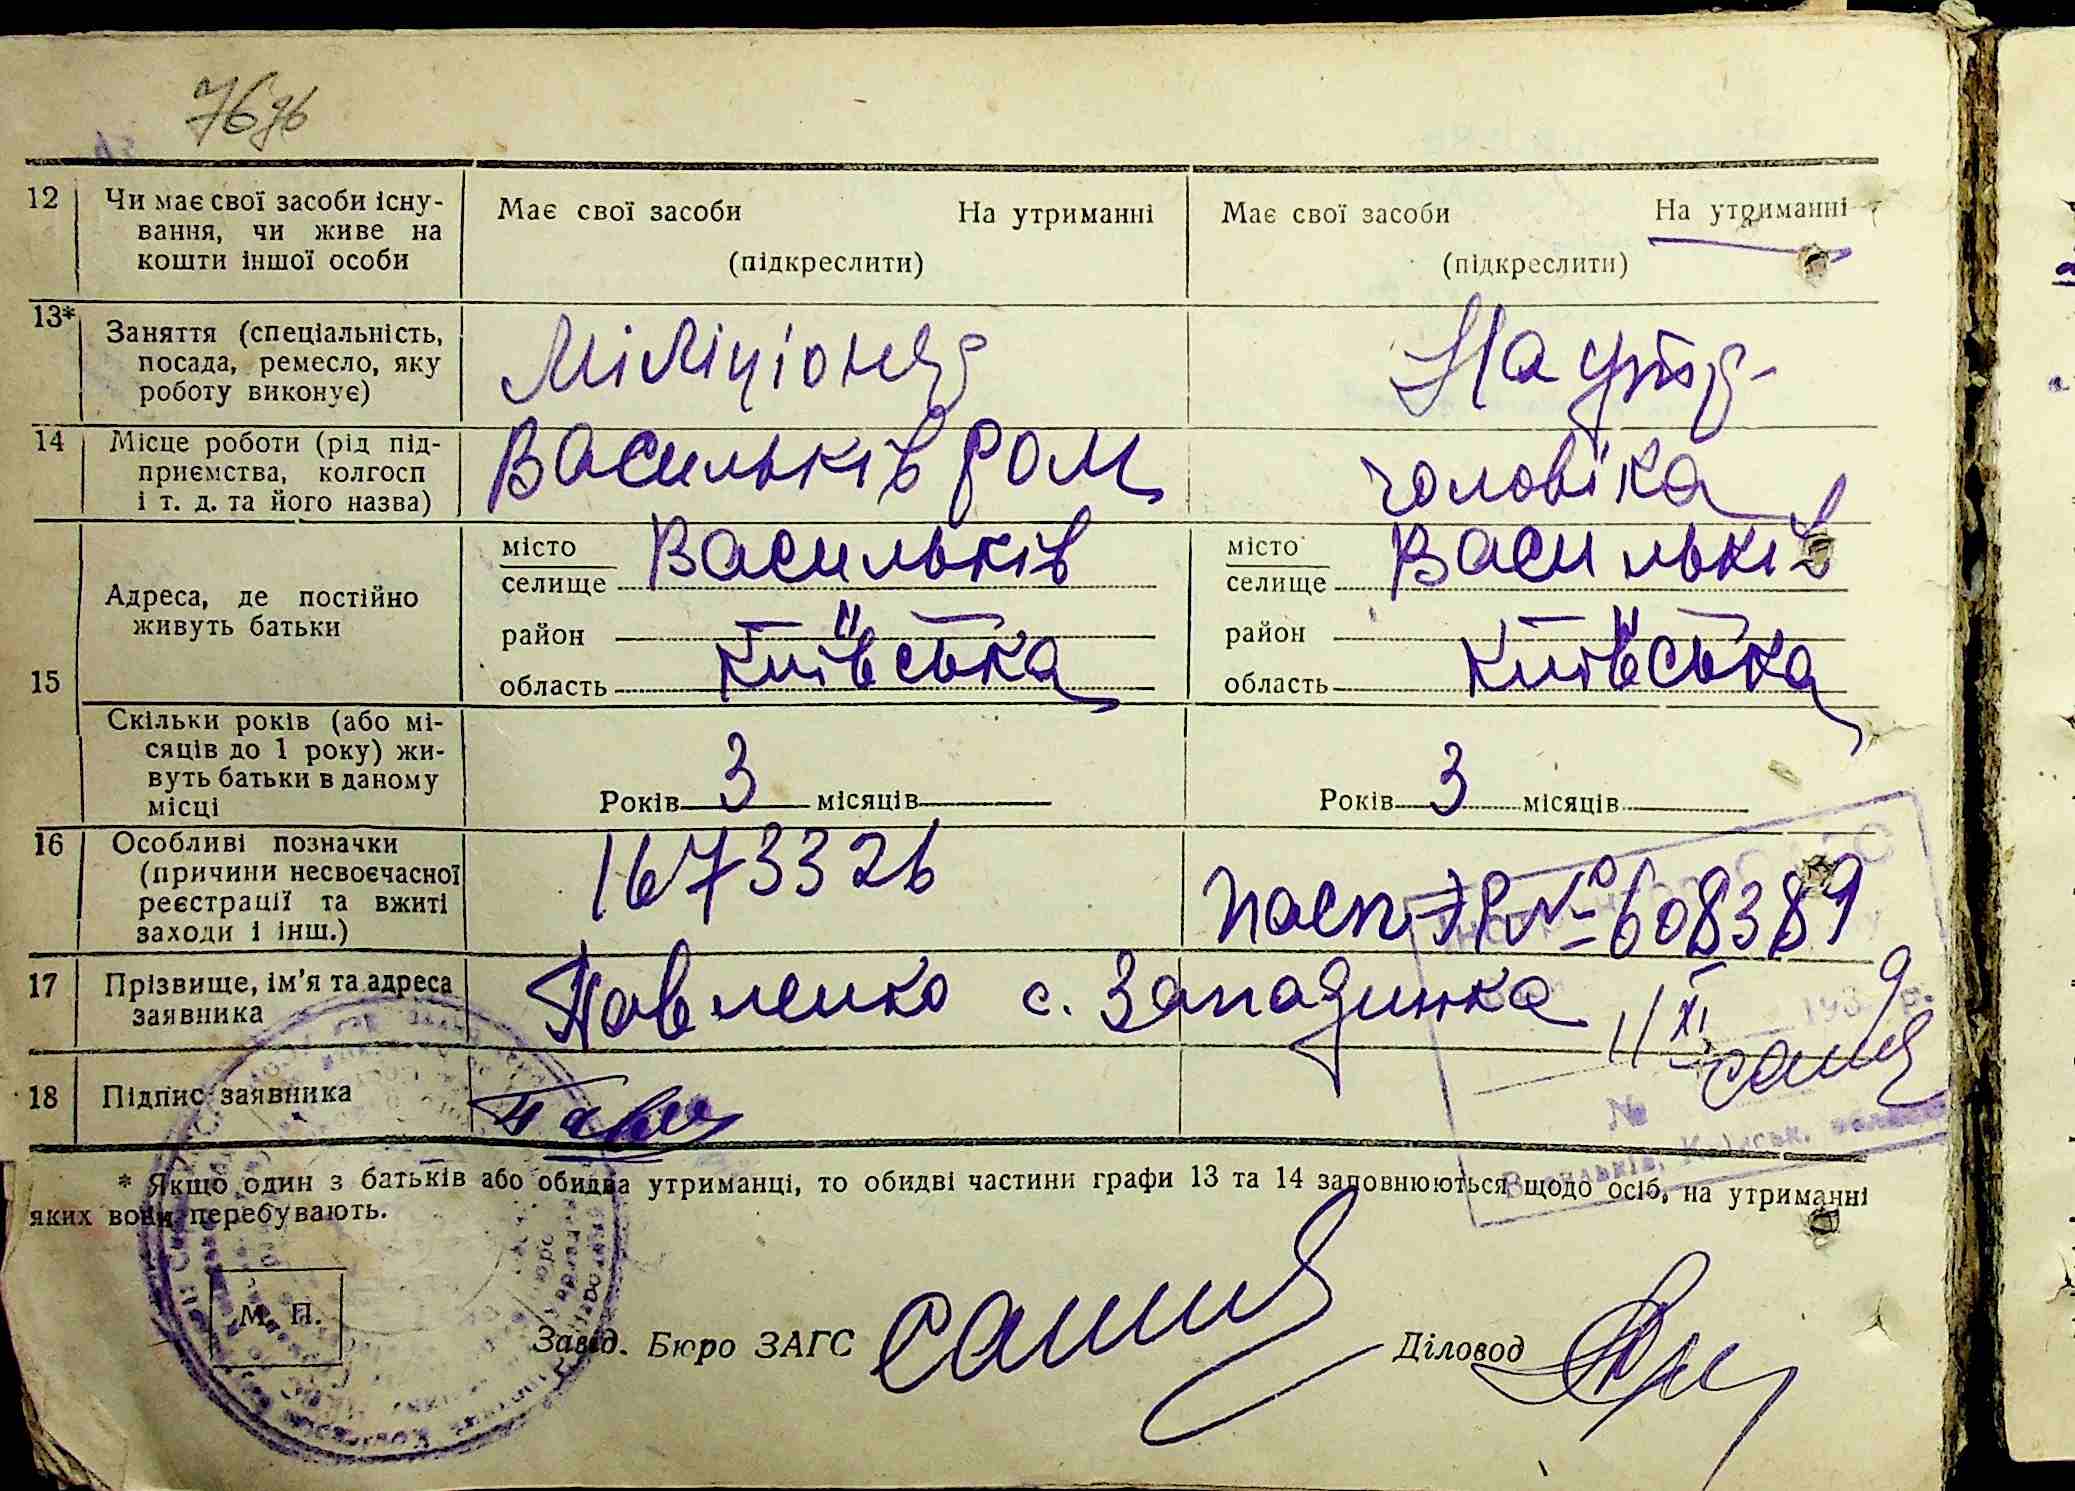 76
12 Чи має свої засоби існу- Має свої засоби На утриманні Має свої засоби На утриманні
вання, чи живе на
кошти іншої особи (підкреслити) (підкреслити)
13* Заняття (спеціальність, Міліціонер На утр-
посада, ремесло, яку
роботу виконує)
14 Місце роботи (рід під- Васильків ром чоловіка
приємства, колгосп
і т. д. та його назва)
15 Адреса, де постійно місто Васильків місто Васильків
живуть батьки селище селище
район — " — район — " —
область Київська область Київська
Скільки років (або мі-
сяців до 1 року) жи-
вуть батьки в даному
місці Років 3 місяців Років 3 місяців
16 Особливі позначки 1673326 пасп № 608389
(причини несвоєчасної
реєстрації та вжиті
заходи і інш.)
17 Прізвище, ім'я та адреса Павленко с. Западинка 11 XI 193 9 р.
заявника
18 Підпис заявника Павл
№
Васильків, Київськ. област
* Якщо один з батьків або обидва утриманці, то обидві частини графи 13 та 14 заповнюються щодо осіб, на утриманні
яких вони перебувають.
М. П.
Завід. Бюро ЗАГС Діловод